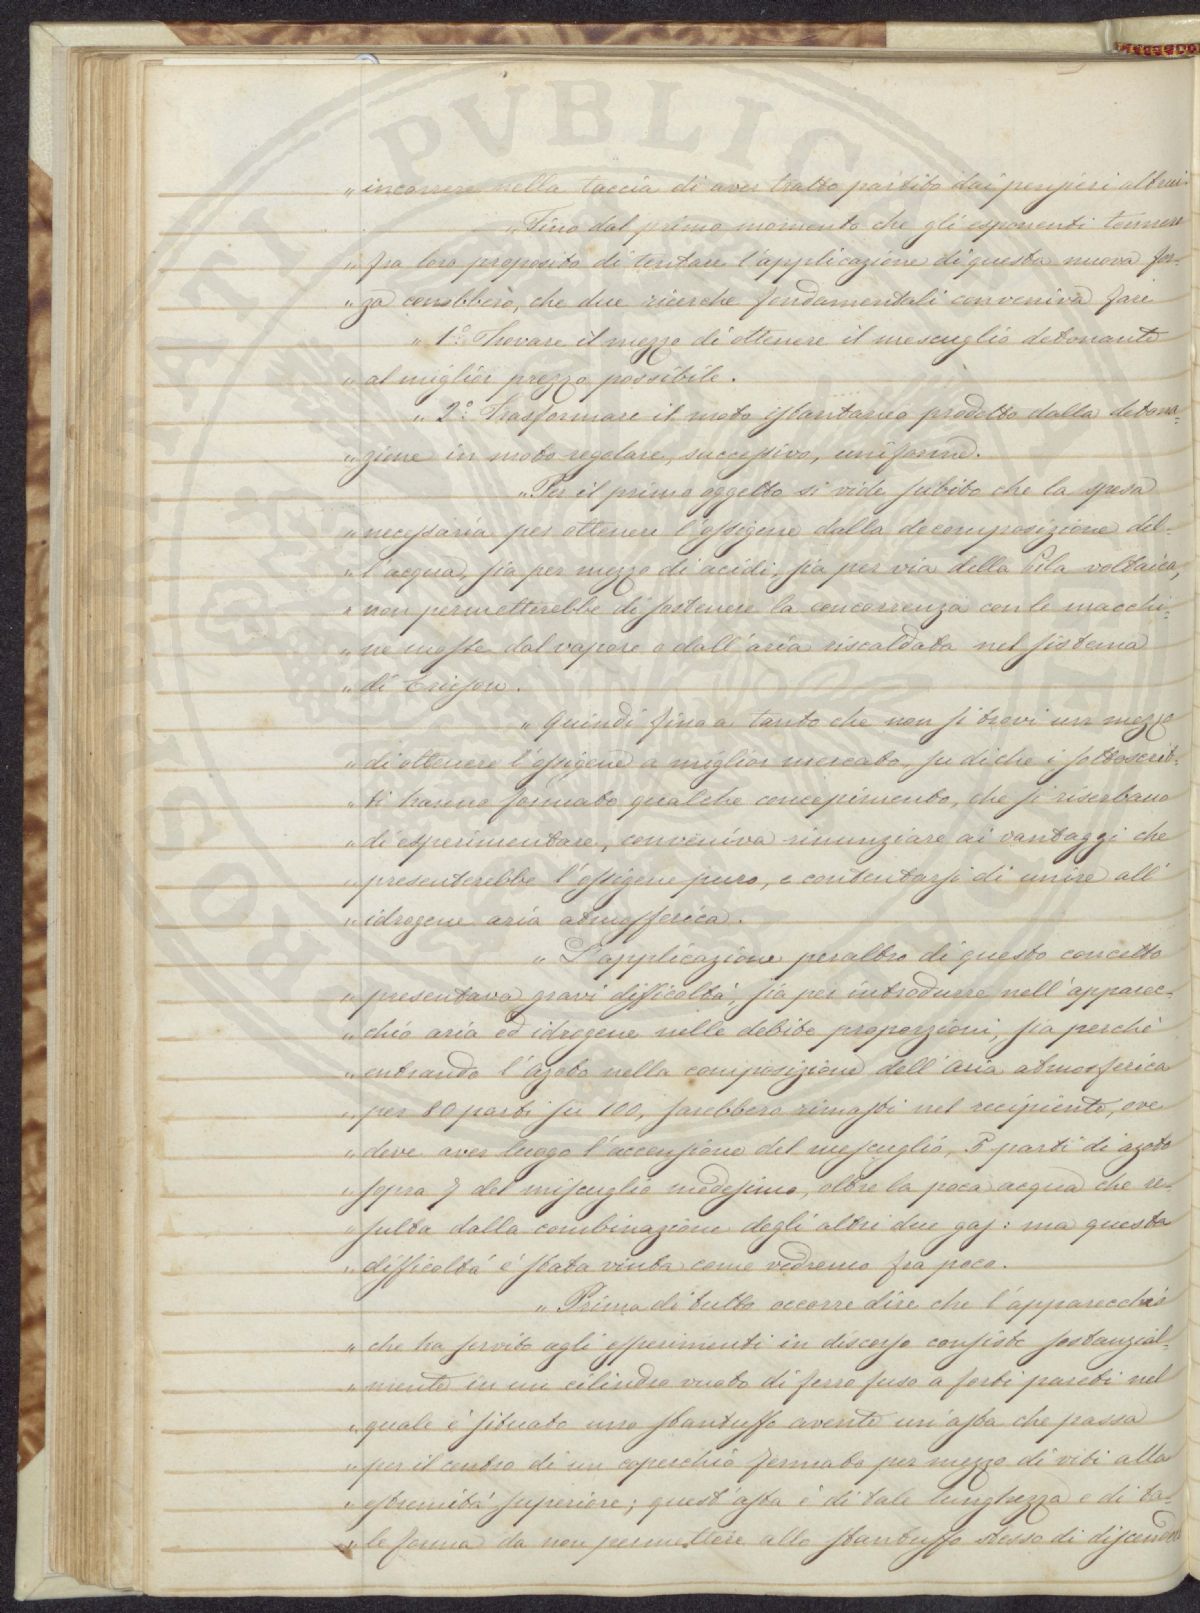 PVBLICA
„ incorrere nella taccia di aver tratto partito dai pensieri altrui.
„ Fino dal primo momento che gli esponenti tennero
„ fra loro proposito di tentare l'applicazione di questa nuova for-
„ za conobbero, che due ricerche fondamentali conveniva fare
„ 1.º Trovare il mezzo di ottenere il mescuglio detonante
„ al miglior prezzo possibile.
„ 2.º Trasformare il moto istantaneo prodotto dalla detona-
„ zione in moto regolare, successivo, uniforme.
„ Per il primo oggetto si vide subito che la spesa
„ necessaria per ottenere l'ossigene dalla decomposizione del-
„ l'acqua, sia per mezzo di acidi, sia per via della Pila voltaica,
„ non permetterebbe di sostenere la concorrenza con le macchi-
„ ne mosse dal vapore o dall'aria riscaldata nel sistema
„ di Ericson.
„ Quindi fino a tanto che non si trovi un mezzo
„ di ottenere l'ossigene a miglior mercato, su di che i sottoscrit-
„ ti hanno formato qualche concepimento, che si riserbano
„ di esperimentare, conveniva rinunziare ai vantaggi che
„ presenterebbe l'ossigene puro, e contentarsi di unire all'
„ idrogene aria atmosferica.
„ L'applicazione peraltro di questo concetto
„ presentava gravi difficoltà, sia per introdurre nell'apparec-
„ chio aria ed idrogene nelle debite proporzioni, sia perché
„ entrando l'azoto nella composizione dell'aria atmosferica
„ per 80 parti su 100, sarebbero rimasti nel recipiente, ove
„ deve aver luogo l'accensione del mescuglio, 5 parti di azoto
„ sopra 7 del miscuglio medesimo, oltre la poca acqua che re-
„ sulta dalla combinazione degli altri due gas: ma questa
„ difficoltà è stata vinta come vedremo fra poco.
„ Prima di tutto occorre dire che l'apparecchio
„ che ha servito agli esperimenti in discorso consiste sostanzial-
„ mente in un cilindro vuoto di ferro fuso a forti pareti nel
„ quale è situato uno stantuffo avente un'asta che passa
„ per il centro di un coperchio fermato per mezzo di viti alla
„ estremità superiore; quest'asta è di tale lunghezza e di ta-
„ le forma da non permettere allo stantuffo stesso di discendere